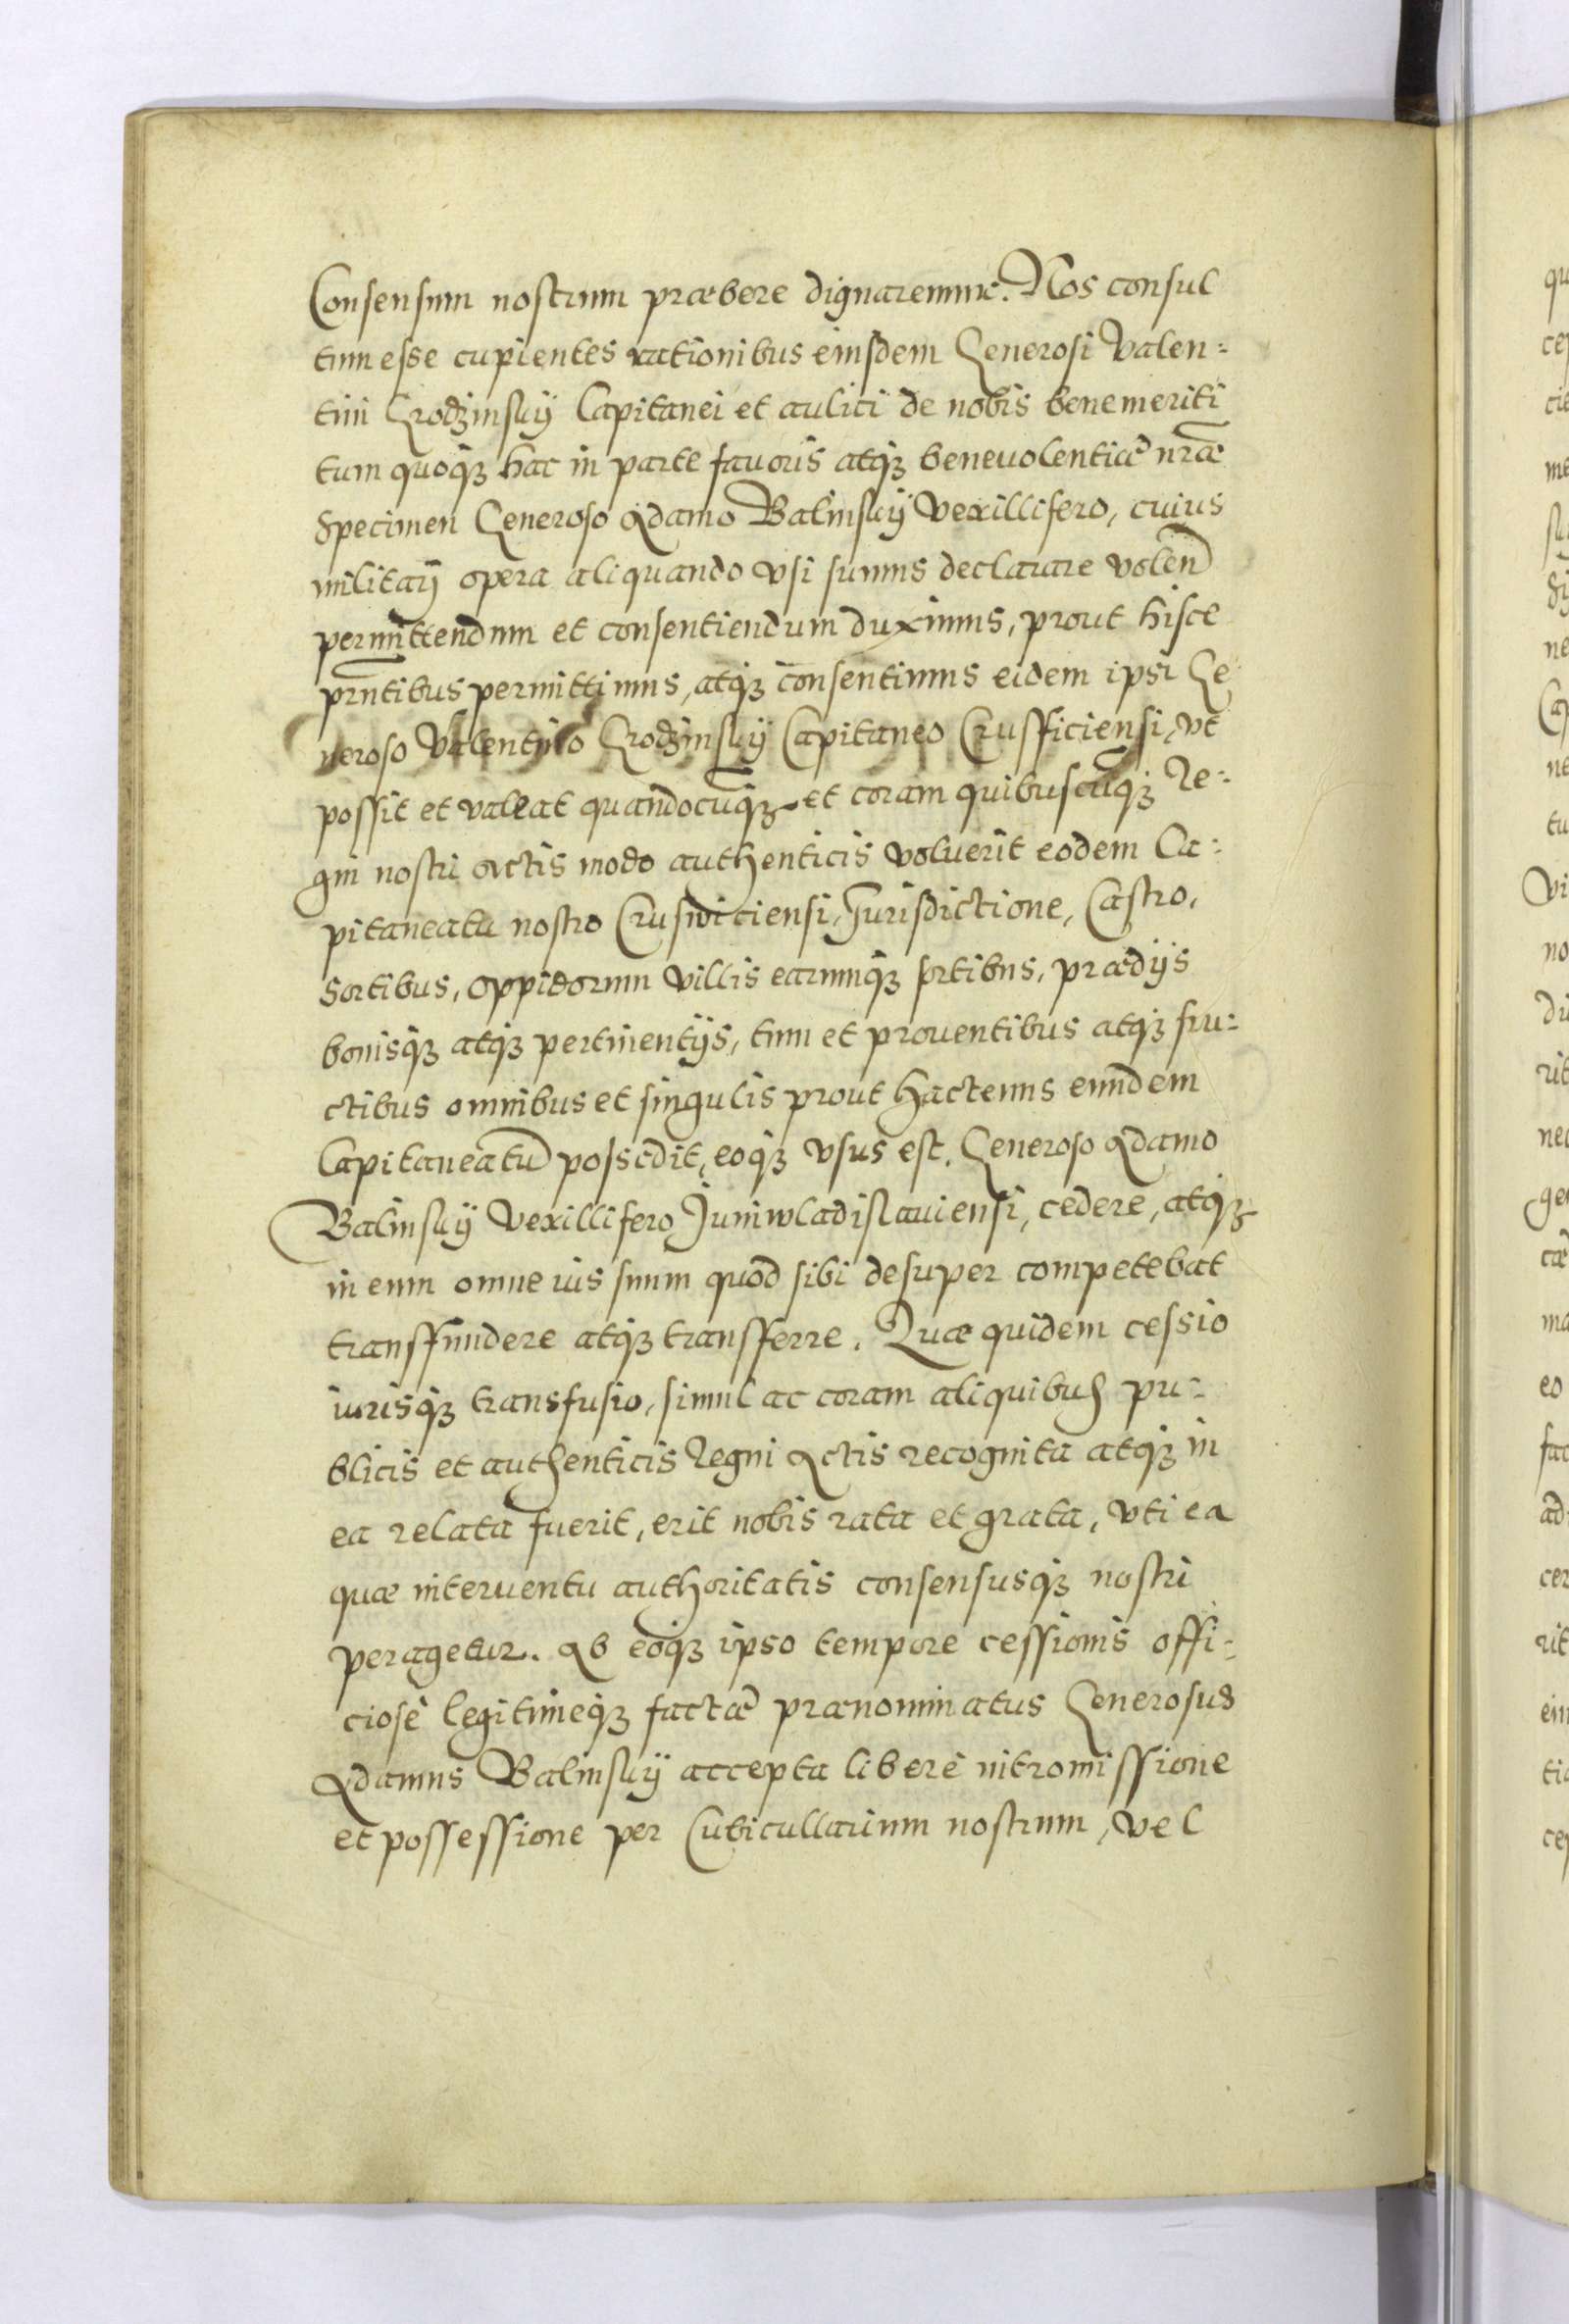 Consensum nostrum præbere dignaremur. Nos consul
tum esse cupientes rationibus eiusdem Generosi Valen:
tini Grodzinskÿ Capitanei et aulici de nobis benemeriti
tum quoqȝ hac in parte fauoris atqȝ beneuolentiæ nræ
specimen Generoso Adamo Balinskÿ Vexillifero, cuius
militarj opera aliquando vsi sumus declarare volen
permittendum et consentiendum duximus, prout hisce
prntibus permittimus, atqȝ consentimus eidem ipsi Ge
neroso Valentino Grodzinskÿ Capitaneo Crusficiensi, vt
possit et valeat quandocunqȝ et coram quibuscūqȝ Re:
gni nostri Actis modo authenticis voluerit eodem Ca:
pitaneatu nostro Cruswiciensi, Jurisdictione, Castro,
Sortibus, oppidorum villis earumqȝ sortibus, prædÿs
bonisqȝ atqȝ pertinentÿs, tum et prouentibus atqȝ fru:
ctibus omnibus et singulis prout hactenus eundem
Capitaneatū possedit, eoqȝ vsus est. Generoso Adamo
Balinskÿ Vexillifero Juniwladislauiensi, cedere, atqȝ
in eum omne ius suum quod sibi desuper competebat
transfundere atqȝ transferre. Quæ quidem cessio
iurisqȝ transfusio, simul ac coram aliquibus pu:
blicis et authenticis Regni Actis recognita atqȝ in
ea relata fuerit, erit nobis rata et grata, vti ea
quæ interuentu authoritatis consensusqȝ nostri
peragetur. Ab eoqȝ ipso tempore cessionis offi:
ciosè legitimeqȝ factæ prænominatus Generosus
Adamus Balinskÿ accepta liberè intromissione
et possessione per Cubicullarium nostrum, vel